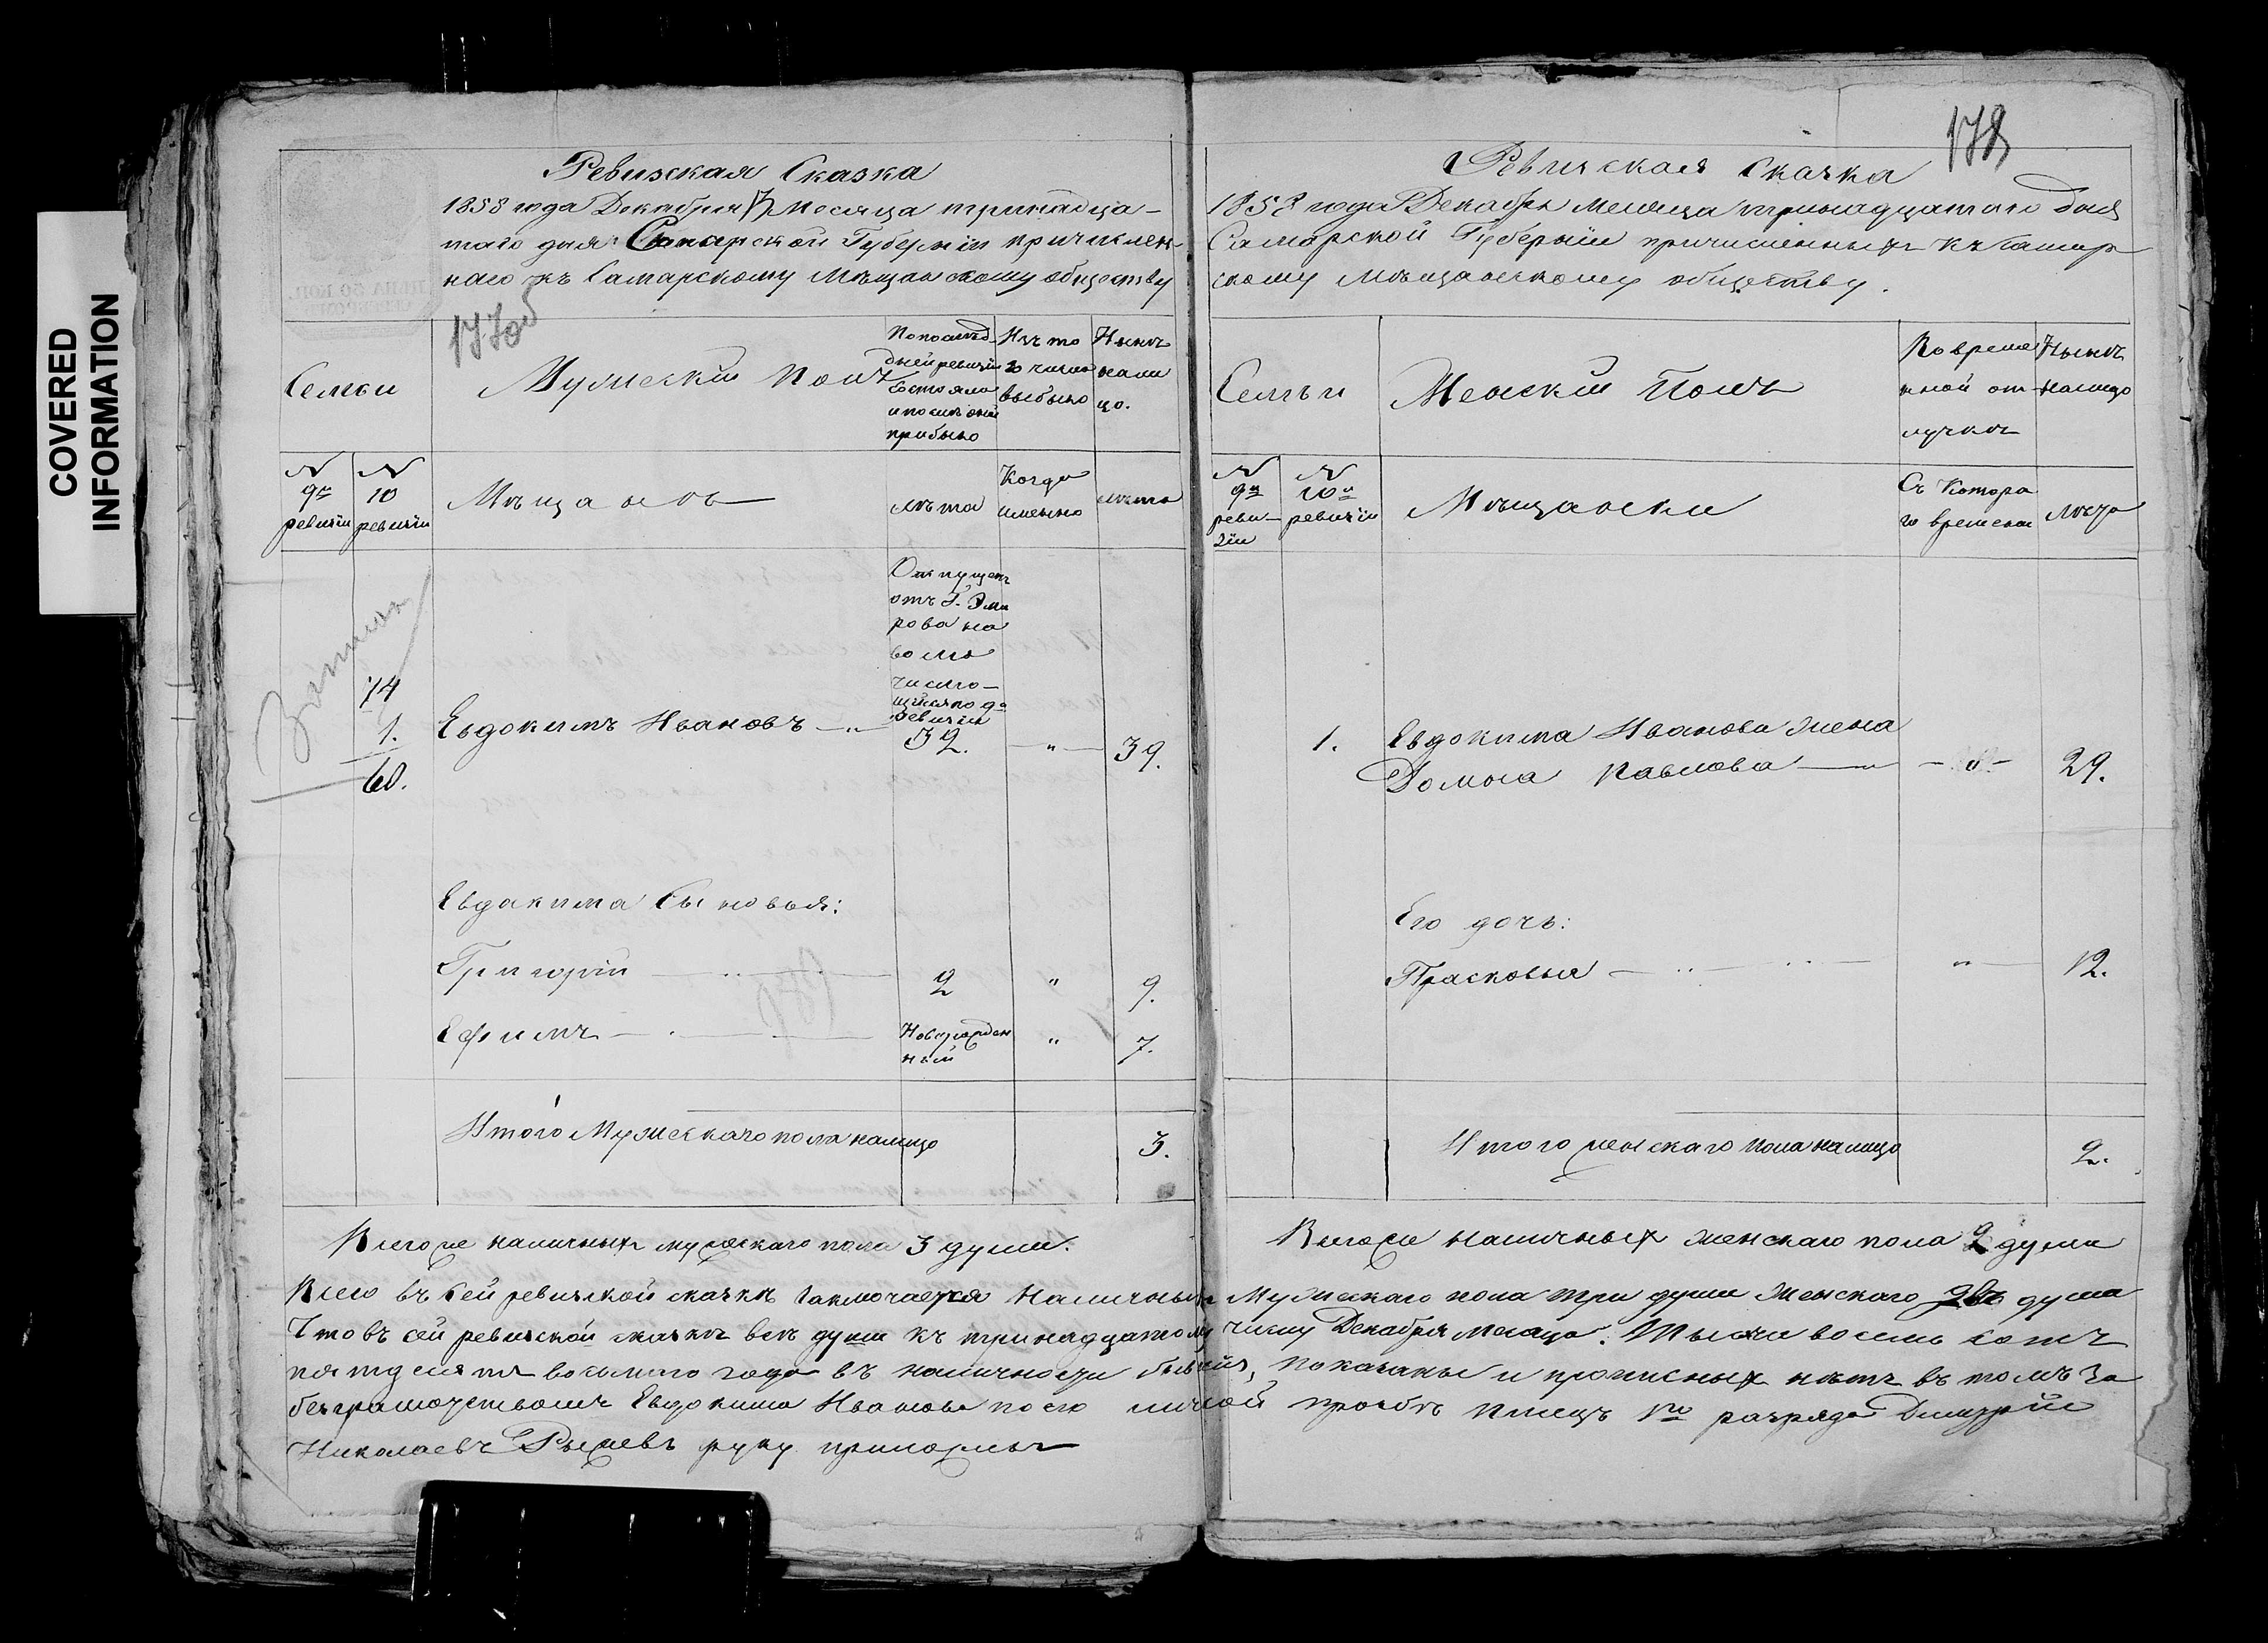 COVERED
INFORMATION
Ревизская Сказка
1858 года Декабря Месяца тринадца-
таго дня Самарской Губерніи причислен-
наго къ Самарскому Мѣщанскому обществу
177об
Семьи
Мужескій Полъ
По послѣд
ней ревизіи
состояло
и послѣ оной
прибыло
Изъ то
го числа
выбыло
Нынѣ
на ли
цо.
№
9й
ревизіи
№
10
ревизіи
Мѣщанъ
лѣта
Когда
именно
лѣта
Отпущенъ
отъ Г.
рова на
волю
число-
щійся по 9й
ревизіи
74
1.
60.
Евдокимъ Ивановъ — " —
32.
"
39.
Евдакима Сыновья:
Григорій
2
"
9.
Ефимъ
Новорожден
ный
"
7.
Итого Мужескаго пола налицо
3.
Всего же наличныхъ мужескаго пола 3 души.
178
Ревизская Сказка
1858 года Декабря Месяца тринадцатаго дня
Самарской Губерніи причисленныхъ къ Самар
скому Мѣщанскому обществу.
Семьи
Женскій Полъ
Во времен
ной от
лучкѣ
Нынѣ
налицо
№
9й
реви-
зіи
№
10й
ревизіи
Мѣщански
Съ Котора
го времени
лѣта
1.
Евдокима Иванова жена
Домна Павлова
29.
Его дочь:
Прасковья
"
12.
Итого женскаго пола налицо
2.
Всего же наличныхъ женскаго пола 2 души
Всего въ сей ревизской сказкѣ заключается Наличныхъ Мужескаго пола три души Женскаго две душа
Что въ сей ревизской сказкѣ всѣ души къ тринадцатому числу Декабря месяца. Тысяча восемь сотъ
пятдесятъ восьмого года въ наличности бывшія, показаны и прописныхъ нѣтъ въ томъ За
безграмотствомъ Евдокима Иванова по его личной прозьбѣ писецъ 1го разряда Дмитрій
Николаевъ руку приложилъ